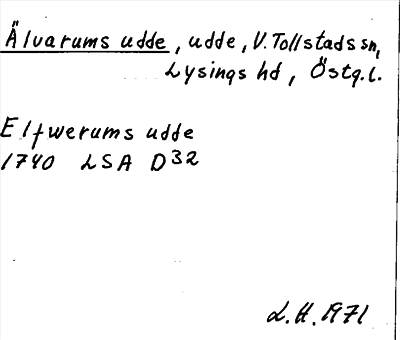 Älvarums udde, udde, V. Tollstads sn,
Lysings hd, Östg.l.
Elfwerums udde
1740 LSA D32
L.H. 1971